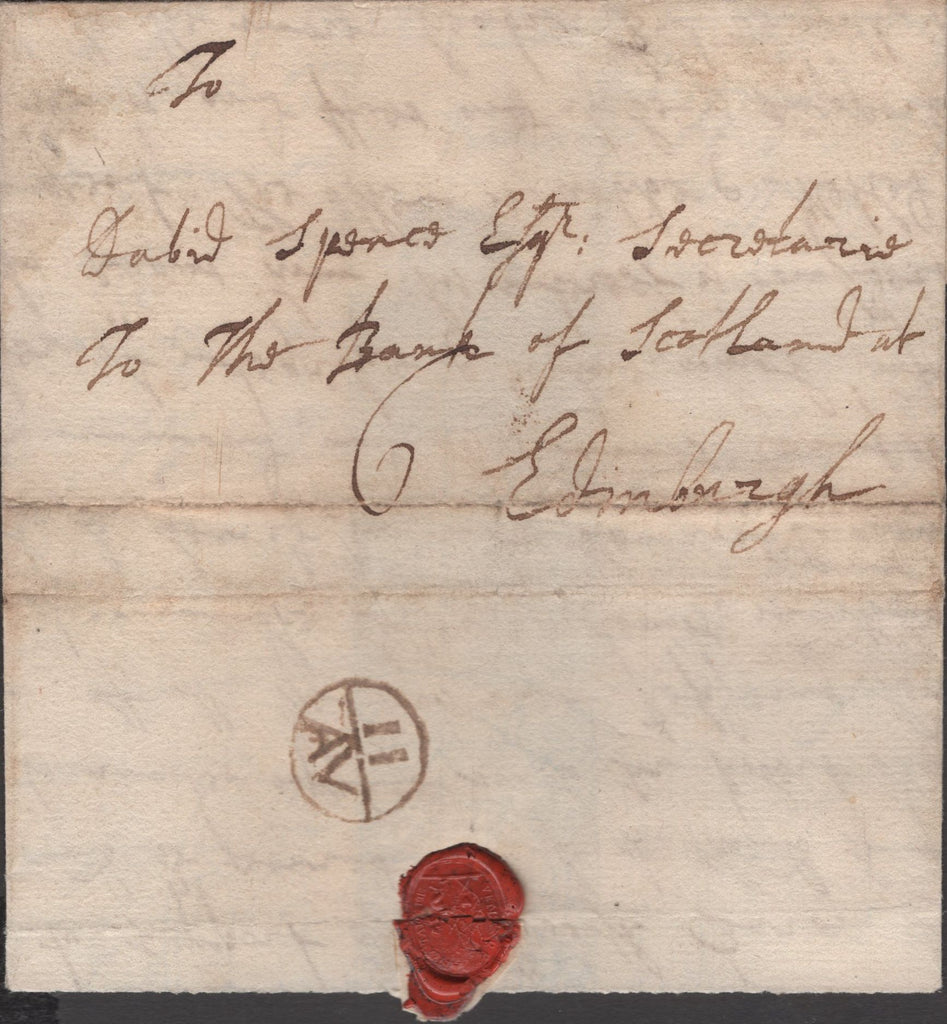 To
David Spence Esqr: Secretarie
To The Bank of Scotland at
6 Edinburgh
11
AV